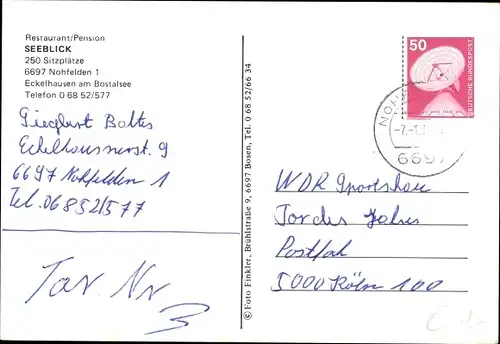 Restaurant/Pension
SEEBLICK
250 Sitzplätze
6697 Nohfelden 1
Eckelhausen am Bostalsee
Telefon 0 68 52/577
Siegbert Boltes
Eckelhausenerst. 9
6697 Nohfelden 1
Tel. 06852/577
Tor. Nr
3
© Foto Finkler, Brühlstraße 9, 6697 Bosen, Tel. 0 68 52/66 34
50
DEUTSCHE BUNDESPOST
NOH
-7.-1.
6697
WDR Sportschau
Tor des Jahres
Postfach
5000 Köln 100